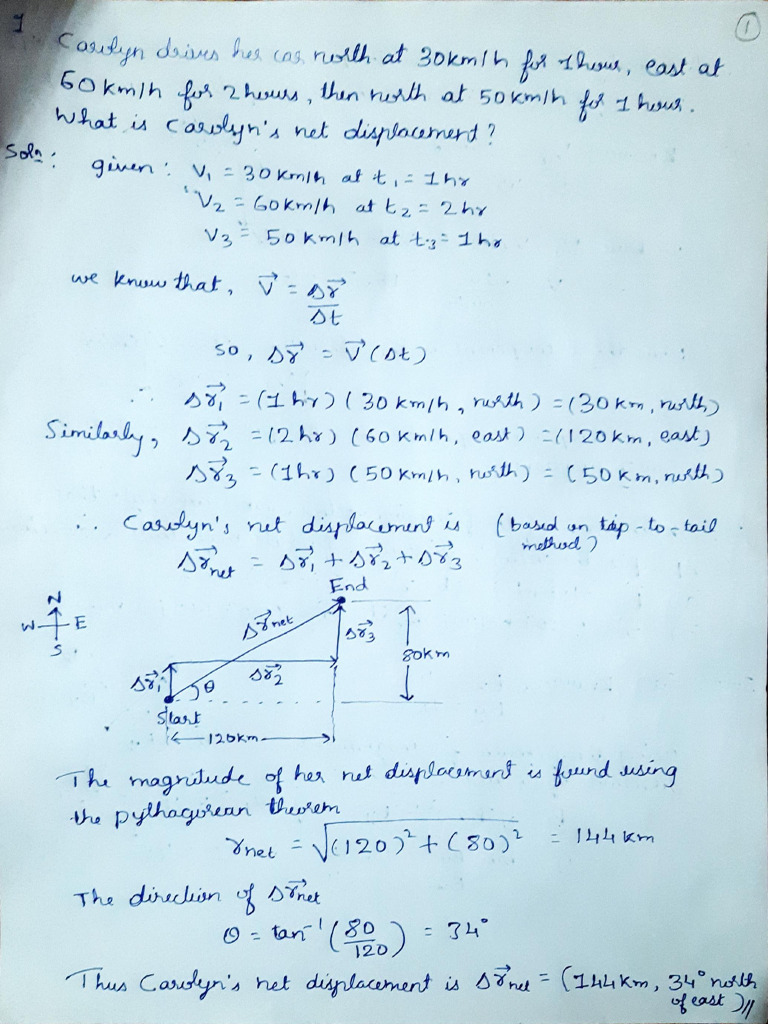 ①
1. Carolyn drives her car north at 30km/h for 1 hour, east at
60 km/h for 2 hours, then north at 50 km/h for 1 hour.
What is Carolyn's net displacement?
Soln: given: V₁ = 30 km/h at t₁ = 1hr
V₂ = 60km/h at t₂ = 2hr
V₃ = 50 km/h at t₃ = 1hr
we know that, V⃗ = Δr⃗/Δt
so, Δr⃗ = V⃗ (Δt)
∴ Δr⃗₁ = (1 hr) (30 km/h, north) = (30 km, north)
Similarly, Δr⃗₂ = (2 hr) (60 km/h, east) = (120 km, east)
Δr⃗₃ = (1hr) (50 km/h, north) = (50 km, north)
∴ Carolyn's net displacement is (based on tip-to-tail
method)
Δr⃗net = Δr⃗₁ + Δr⃗₂ + Δr⃗₃
End
N
W E
S
Δr⃗net
Δr⃗₃
80km
Δr⃗₁ θ Δr⃗₂
Start
120km
The magnitude of her net displacement is found using
the pythagorean theorem
rnet = √(120)² + (80)² = 144 km
The direction of Δr⃗net
θ = tan⁻¹ (80/120) = 34°
Thus Carolyn's net displacement is Δr⃗net = (144 km, 34° north
of east)//